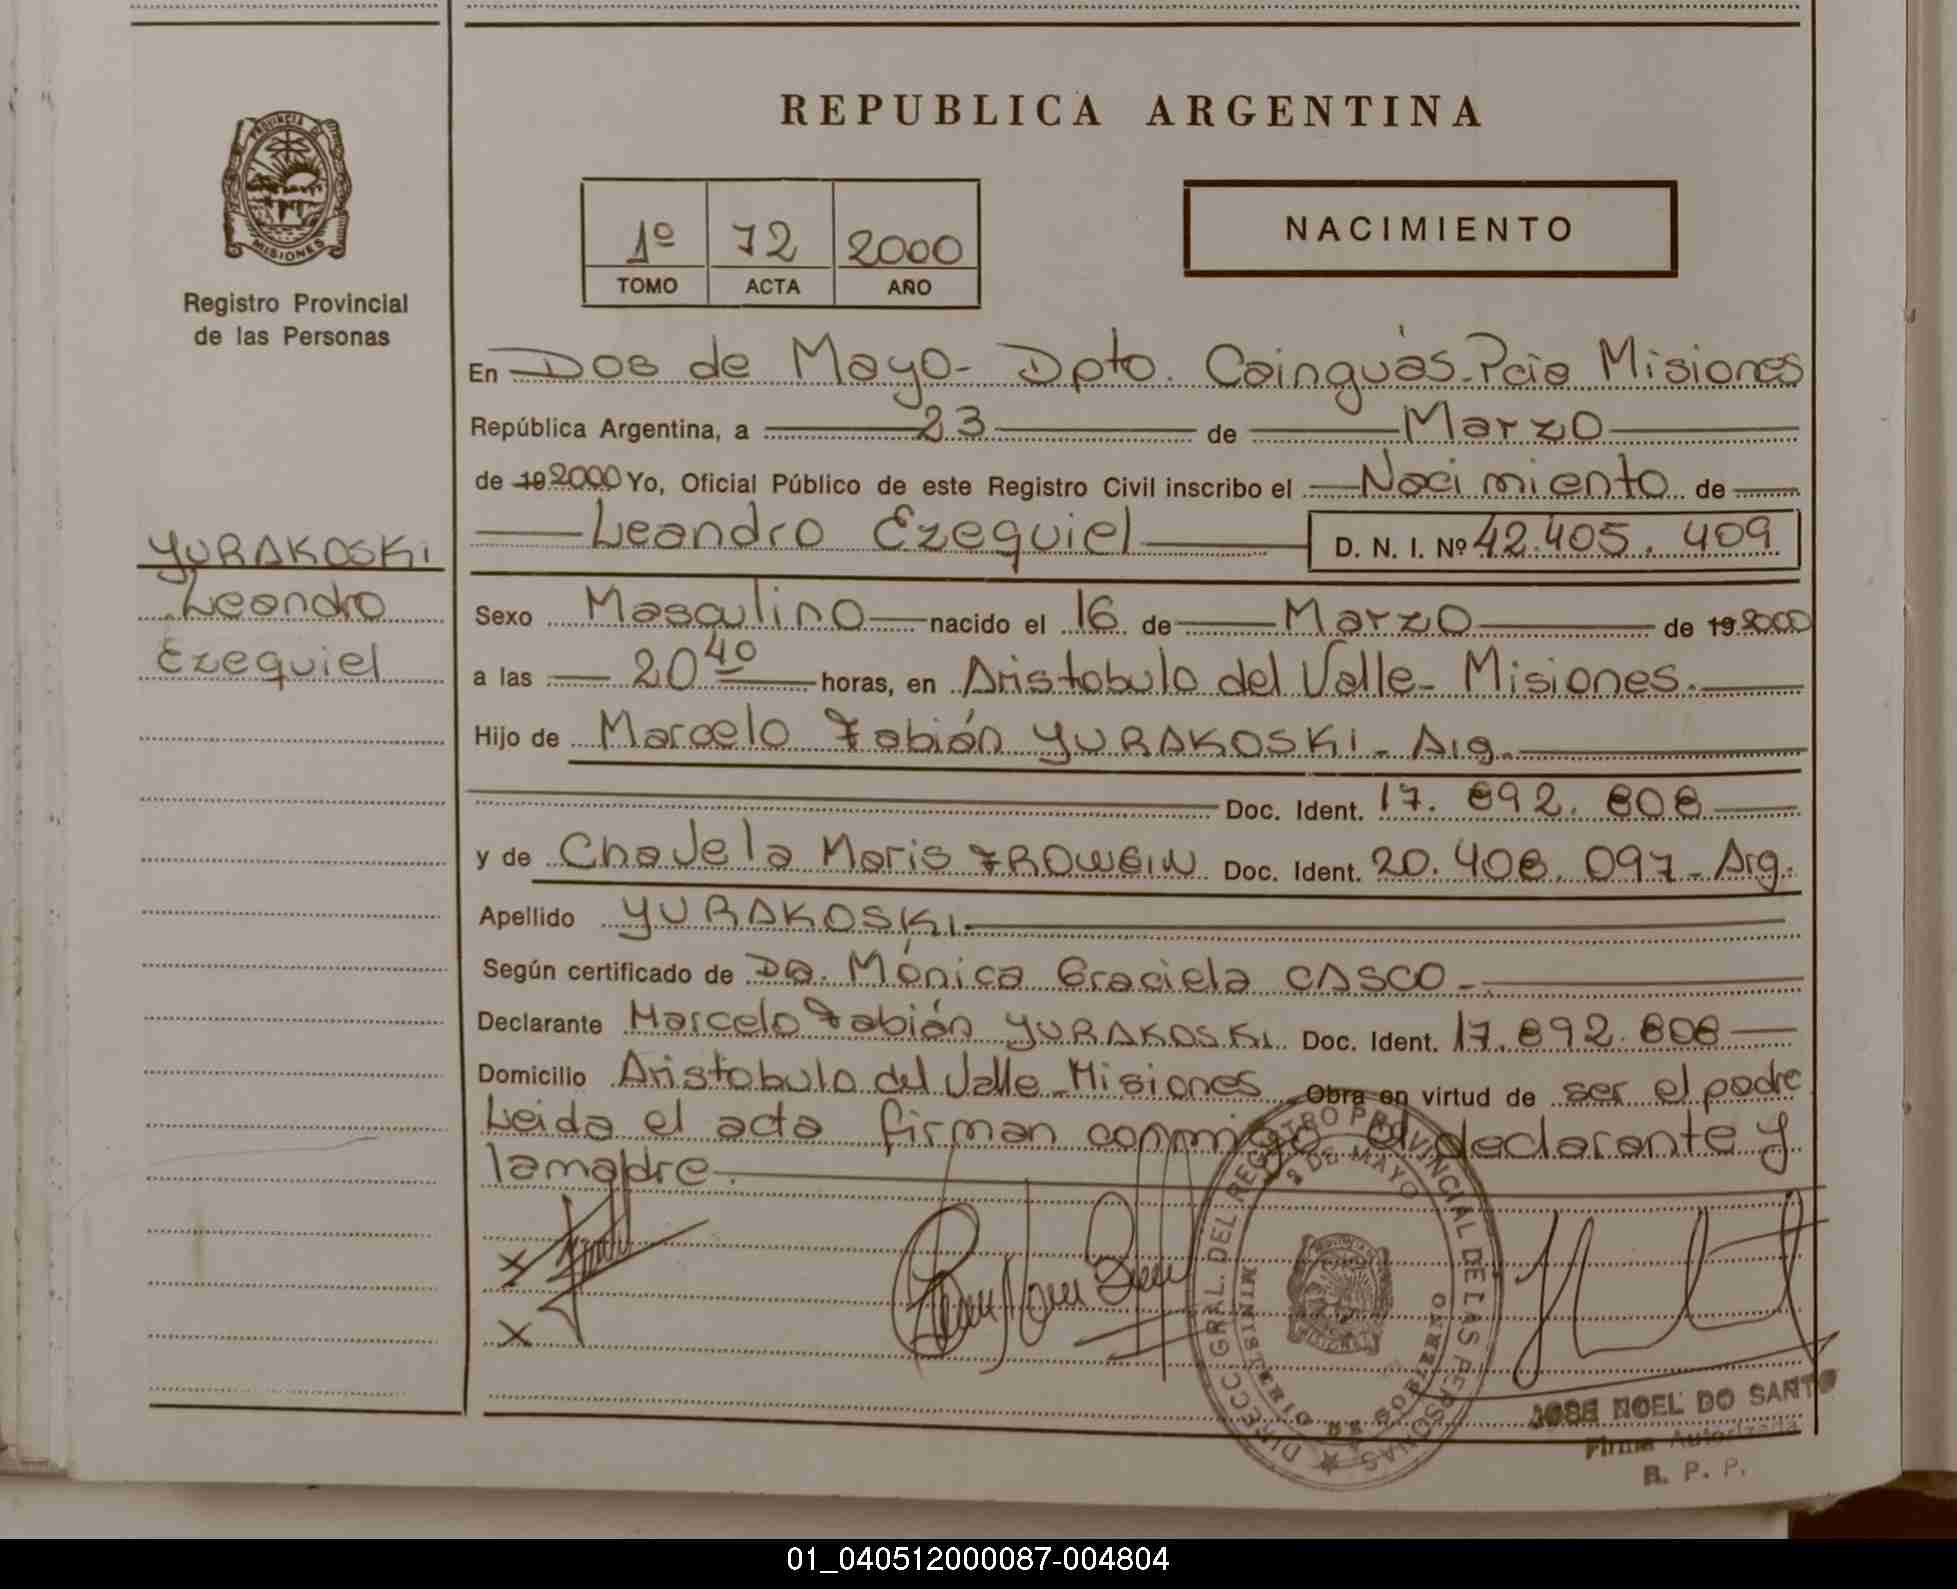 REPUBLICA ARGENTINA
PROVINCIA DE
MISIONES
Registro Provincial
de las Personas
1º 72 2000
TOMO ACTA AÑO
NACIMIENTO
En Dos de Mayo - Dpto. Cainguás - Pcia Misiones
República Argentina, a 23 de Marzo
de 19 2000 Yo, Oficial Público de este Registro Civil inscribo el Nacimiento de
Leandro Ezequiel D. N. I. Nº 42.405.409
YURAKOSKI
Leandro
Ezequiel
Sexo Masculino nacido el 16 de Marzo de 19 2000
a las 20 40 horas, en Aristobulo del Valle - Misiones.
Hijo de Marcelo Fabián YURAKOSKI - Arg.
Doc. Ident. 17.892.808
y de Chavela Maris FROWEIN Doc. Ident. 20.408.097 - Arg.
Apellido YURAKOSKI.
Según certificado de Da. Mónica Graciela CASCO -
Declarante Marcelo Fabián YURAKOSKI Doc. Ident. 17.892.808
Domicilio Aristobulo del Valle - Misiones Obra en virtud de ser el padre
Leida el acta firman conmigo el declarante y
la madre.
DIRECC. GRAL. DEL REGISTRO PROVINCIAL DE LAS PERSONAS
2 DE MAYO
MINISTERIO DE GOBIERNO
JOSE NOEL DO SANTO
Firma Autorizada
R. P. P.
01_040512000087-004804